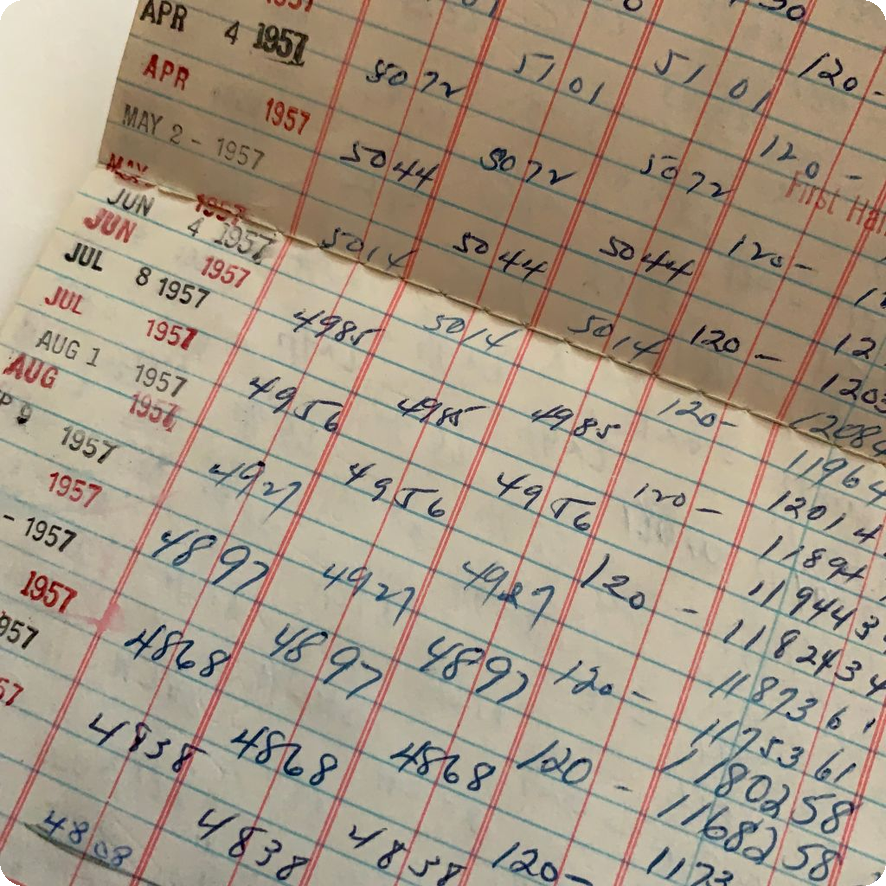 APR 4 1957 5072 5101 5101 120 -
APR 1957
MAY 2 - 1957 5044 5072 5072 120 -
First Ha
MAY 1957
JUN 4 1957 5014 5044 5044 120 -
JUN 1957
JUL 8 1957 4985 5014 5014 120 -
JUL 1957
AUG 1 1957 4956 4985 4985 120 - 12084
AUG 1957 11964
P 9 1957 4927 4956 4956 120 - 12014
1957 11894
- 1957 4897 4927 4927 120 - 119443
1957 1182434
957 4868 4897 4897 120 - 1187361
57 1175361
4838 4868 4868 120 - 1180258
1168258
4808 4838 4838 120 - 1173